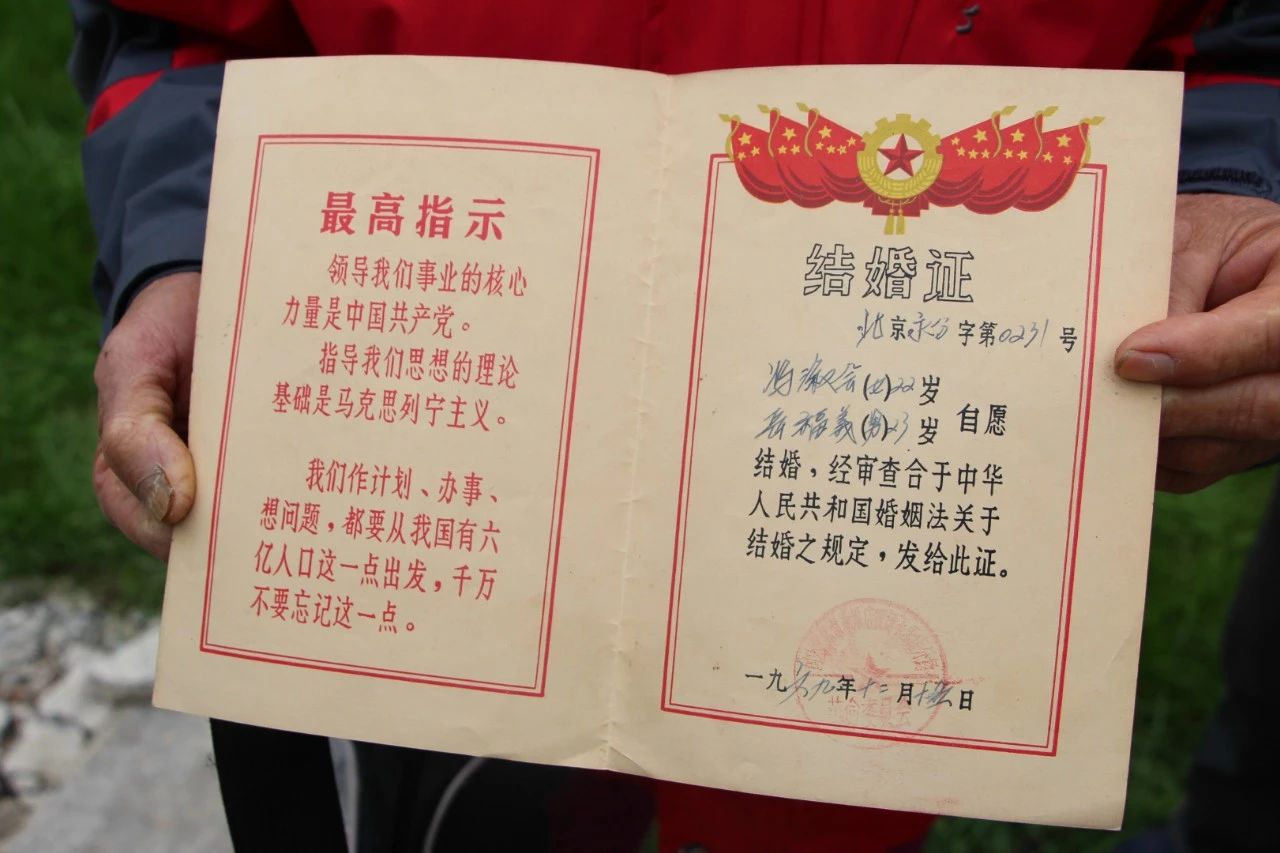 最高指示
领导我们事业的核心
力量是中国共产党。
指导我们思想的理论
基础是马克思列宁主义。
我们作计划、办事、
想问题，都要从我国有六
亿人口这一点出发，千万
不要忘记这一点。
结婚证
北京字第0231号
会(女)22岁
岳福義(男)23岁
自愿
结婚，经审查合于中华
人民共和国婚姻法关于
结婚之规定，发给此证。
一九六九年十二月十五日
革命委员会